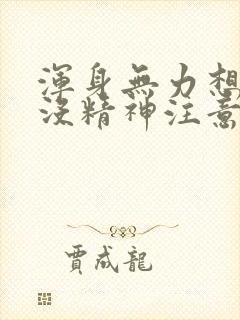 渾身無力想
沒精神注意
賈成龍